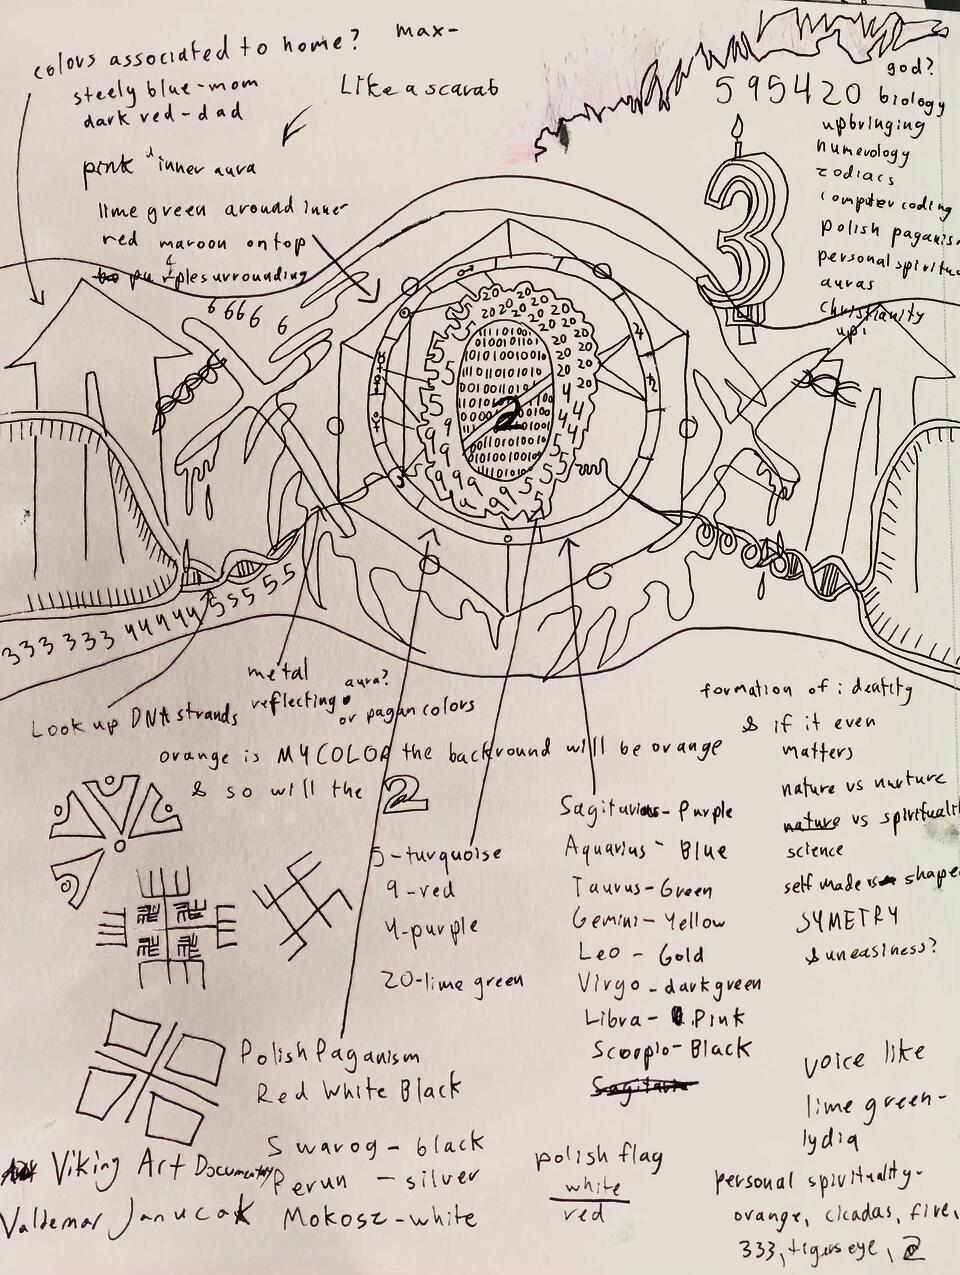 colors associated to home?
max-
steely blue-mom
dark red-dad
Like a scarab
pink inner aura
lime green around inner
red maroon on top
purple surrounding
god?
595420 biology
upbringing
numerology
zodiacs
computer coding
polish paganism
personal spiritua
auras
christianity
up!
3
6666 6
20 20 20
20 20 20 20
20 20
20 20
20 20
20 20
4 20
4 4
4 4
4 4
5 5
5
9 9 5
2
333 333 44444 555 5 5.5
metal
reflecting
aura?
or pagan colors
Look up DNA strands
orange is MY COLOR the backround will be orange
& so will the 2
formation of identity
& if it even
matters
nature vs nurture
nature vs spiritualit
science
self made vs shape
SYMETRY
& uneasiness?
5-turquoise
9-red
4-purple
20-lime green
Sagitarius-Purple
Aquarius-Blue
Taurus-Green
Gemini-Yellow
Leo - Gold
Virgo - dark green
Libra - Pink
Scorpio-Black
Sagitari
Polish Paganism
Red White Black
Swarog - black
Perun - silver
Mokosz-white
Viking Art Documentary
Valdemar Janucak
polish flag
white
red
voice like
lime green-
lydia
personal spirituality-
orange, cicadas, fire,
333, tigers eye, 2